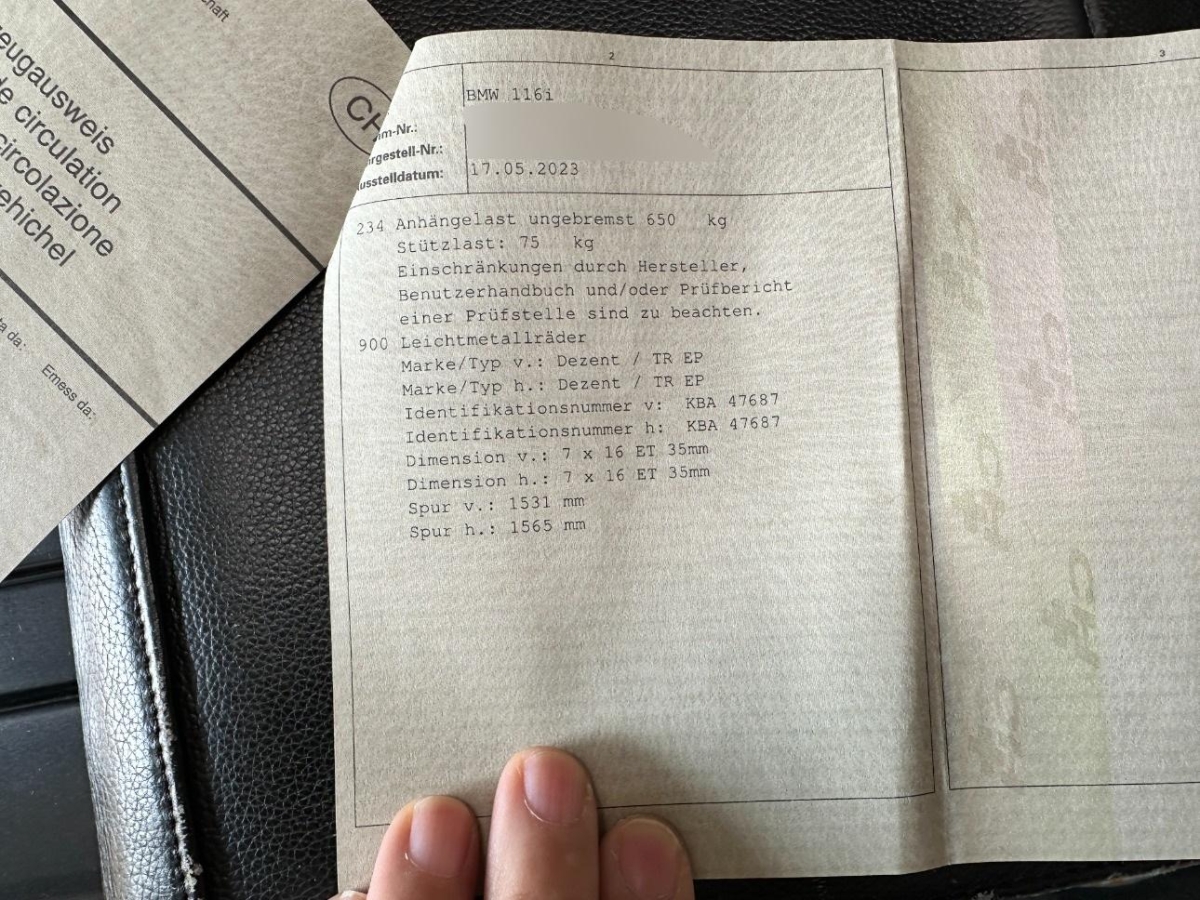 zeugausweis
de circulation
circolazione
vehichel
CH
Emess da:
2
3
BMW 116i
mm-Nr.:
hrgestell-Nr.:
Ausstelldatum: 17.05.2023
234 Anhängelast ungebremst 650 kg
Stützlast: 75 kg
Einschränkungen durch Hersteller,
Benutzerhandbuch und/oder Prüfbericht
einer Prüfstelle sind zu beachten.
900 Leichtmetallräder
Marke/Typ v.: Dezent / TR EP
Marke/Typ h.: Dezent / TR EP
Identifikationsnummer v: KBA 47687
Identifikationsnummer h: KBA 47687
Dimension v.: 7 x 16 ET 35mm
Dimension h.: 7 x 16 ET 35mm
Spur v.: 1531 mm
Spur h.: 1565 mm